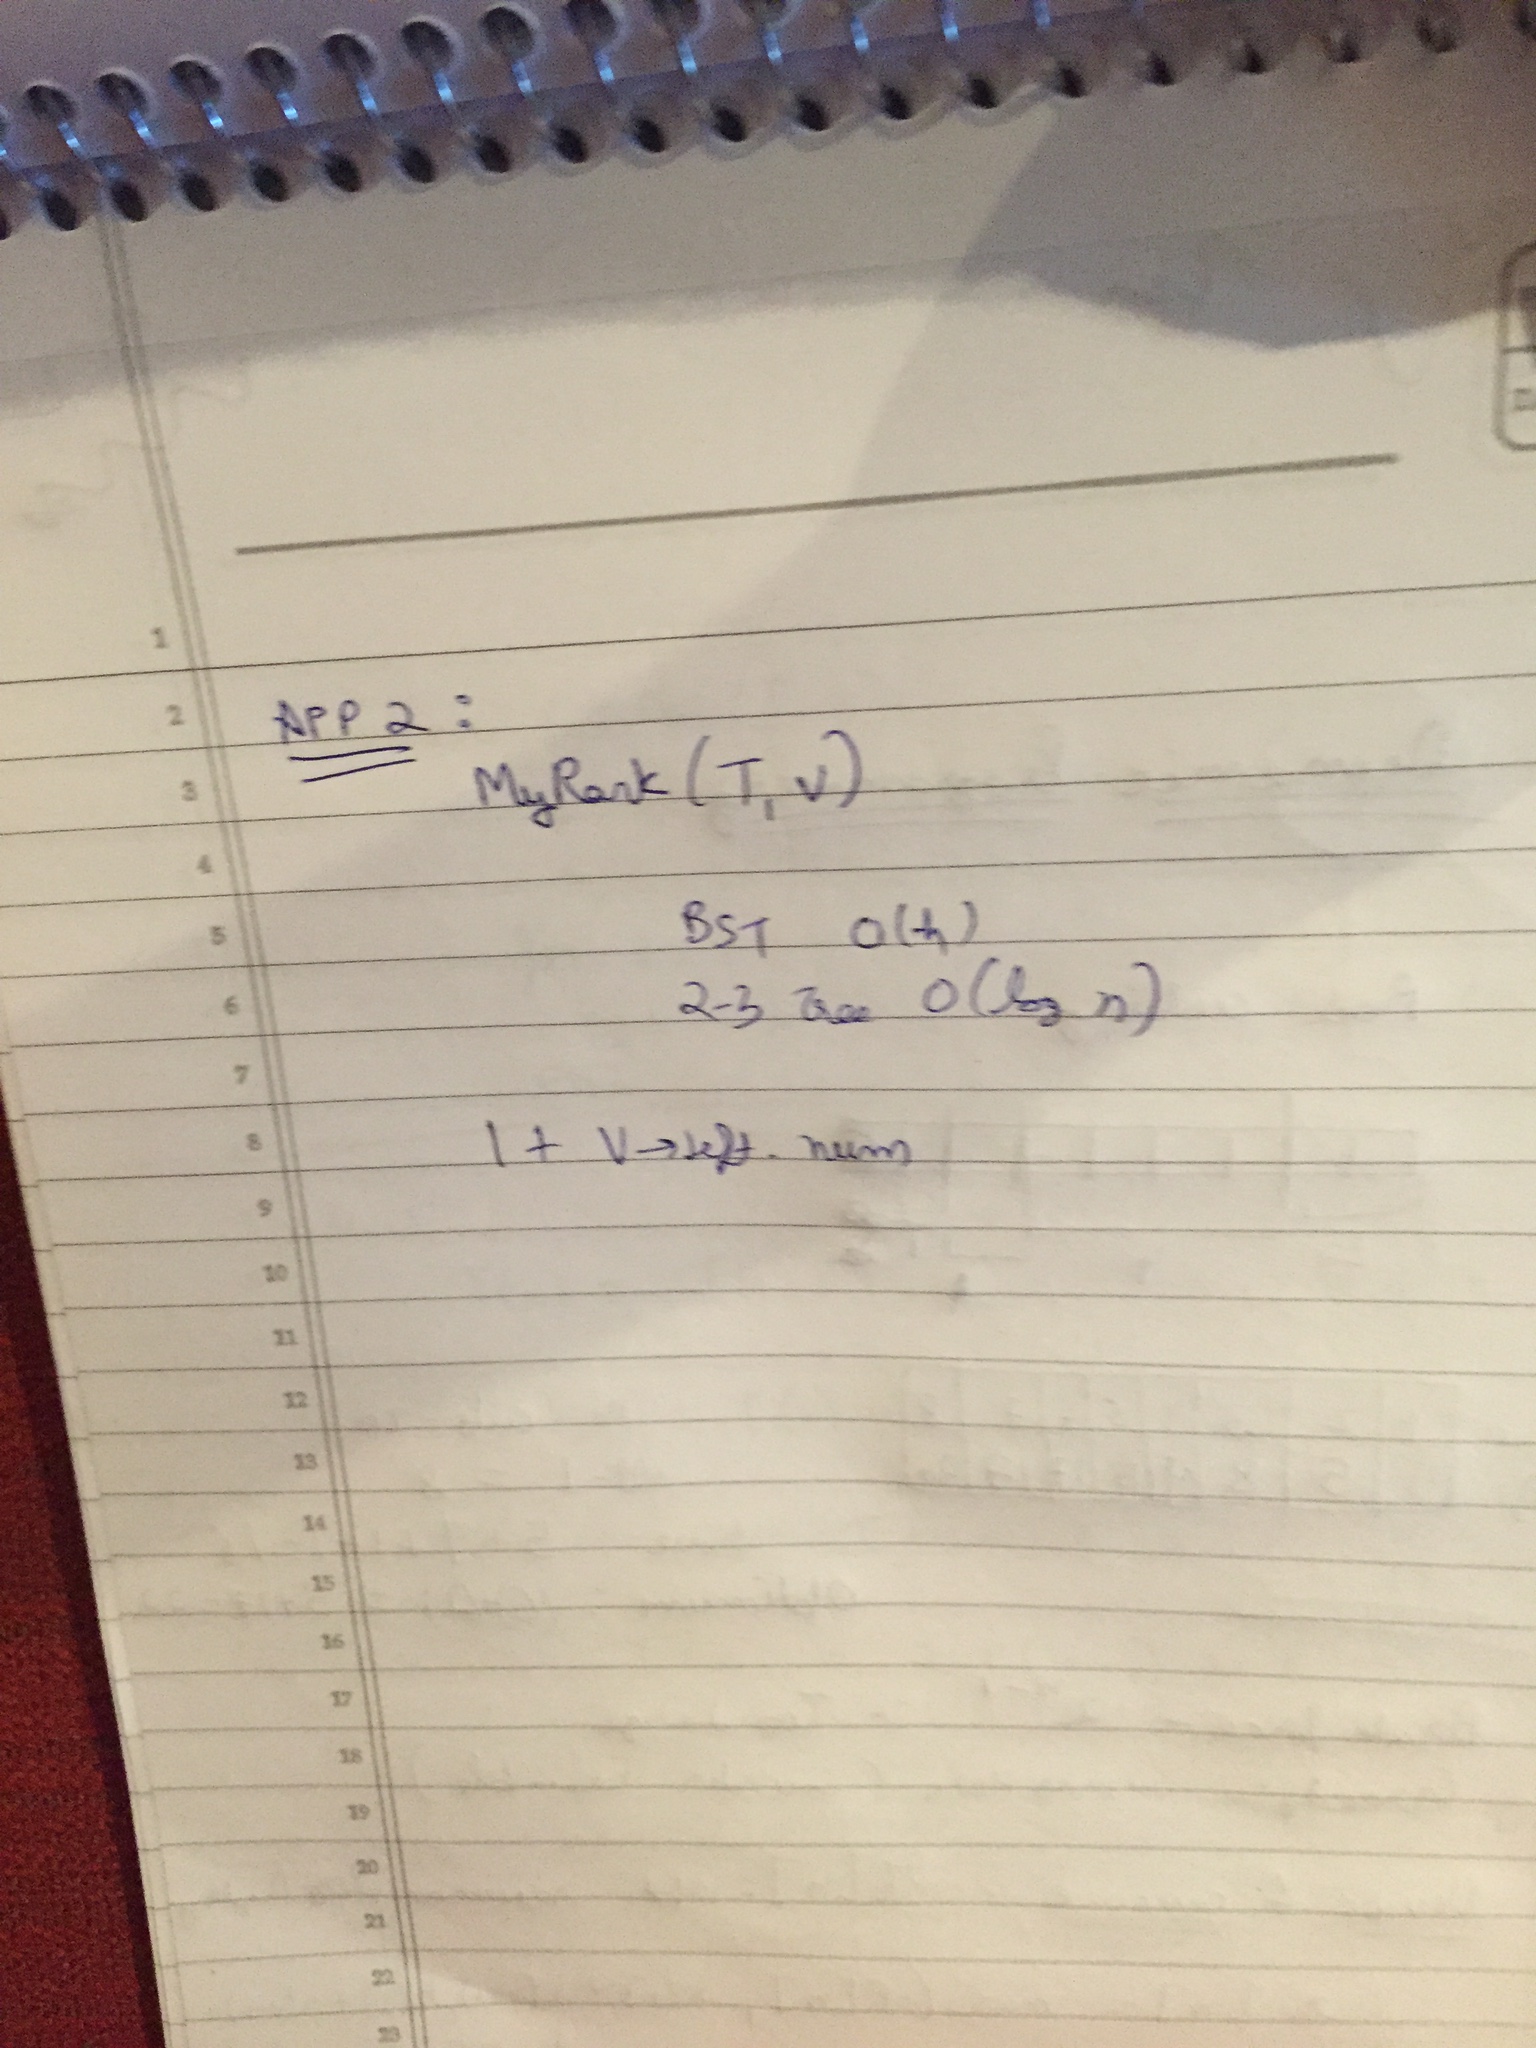 1
2
APP 2 :
3
MyRank (T, V)
4
5
BST O(h)
6
2-3 Tree O(log n)
7
8
1 + V→left. num
9
10
11
12
13
14
15
16
17
18
19
20
21
22
23